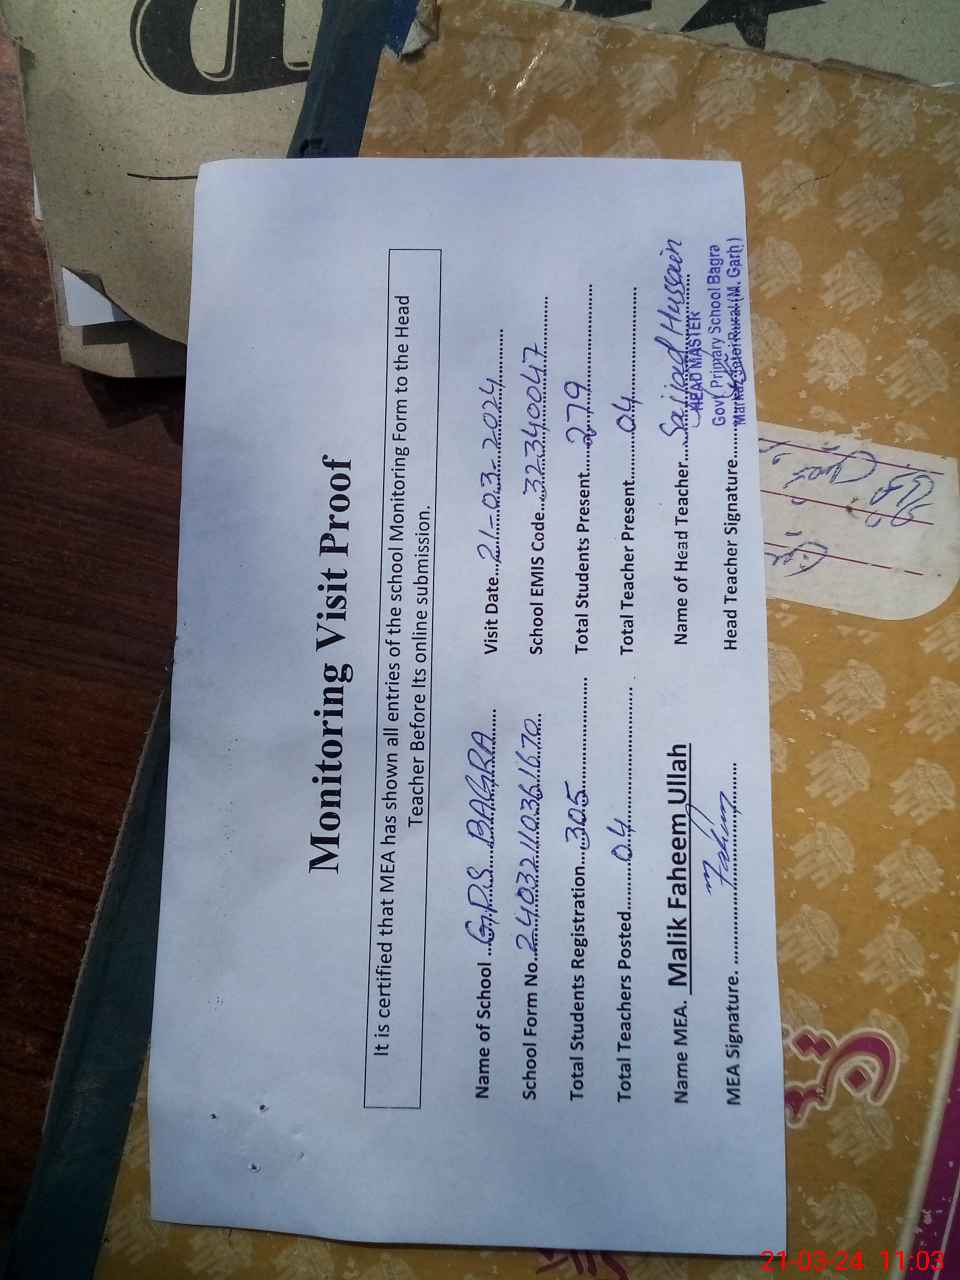 Monitoring Visit Proof
It is certified that MEA has shown all entries of the school Monitoring Form to the Head
Teacher Before Its online submission.
Name of School ...G.P.S. BAGRA............ Visit Date...21-03-2024............
School Form No...24032110361670... School EMIS Code...32340047............
Total Students Registration...305............ Total Students Present...279............
Total Teachers Posted.........04............ Total Teacher Present.........04............
Name MEA. Malik Faheem Ullah Name of Head Teacher...Sajjad Hussain
HEAD MASTER
MEA Signature. ...Faheem............ Head Teacher Signature............
Govt Primary School Bagra
Markaz Rural (M. Garh)
21-03-24 11:03